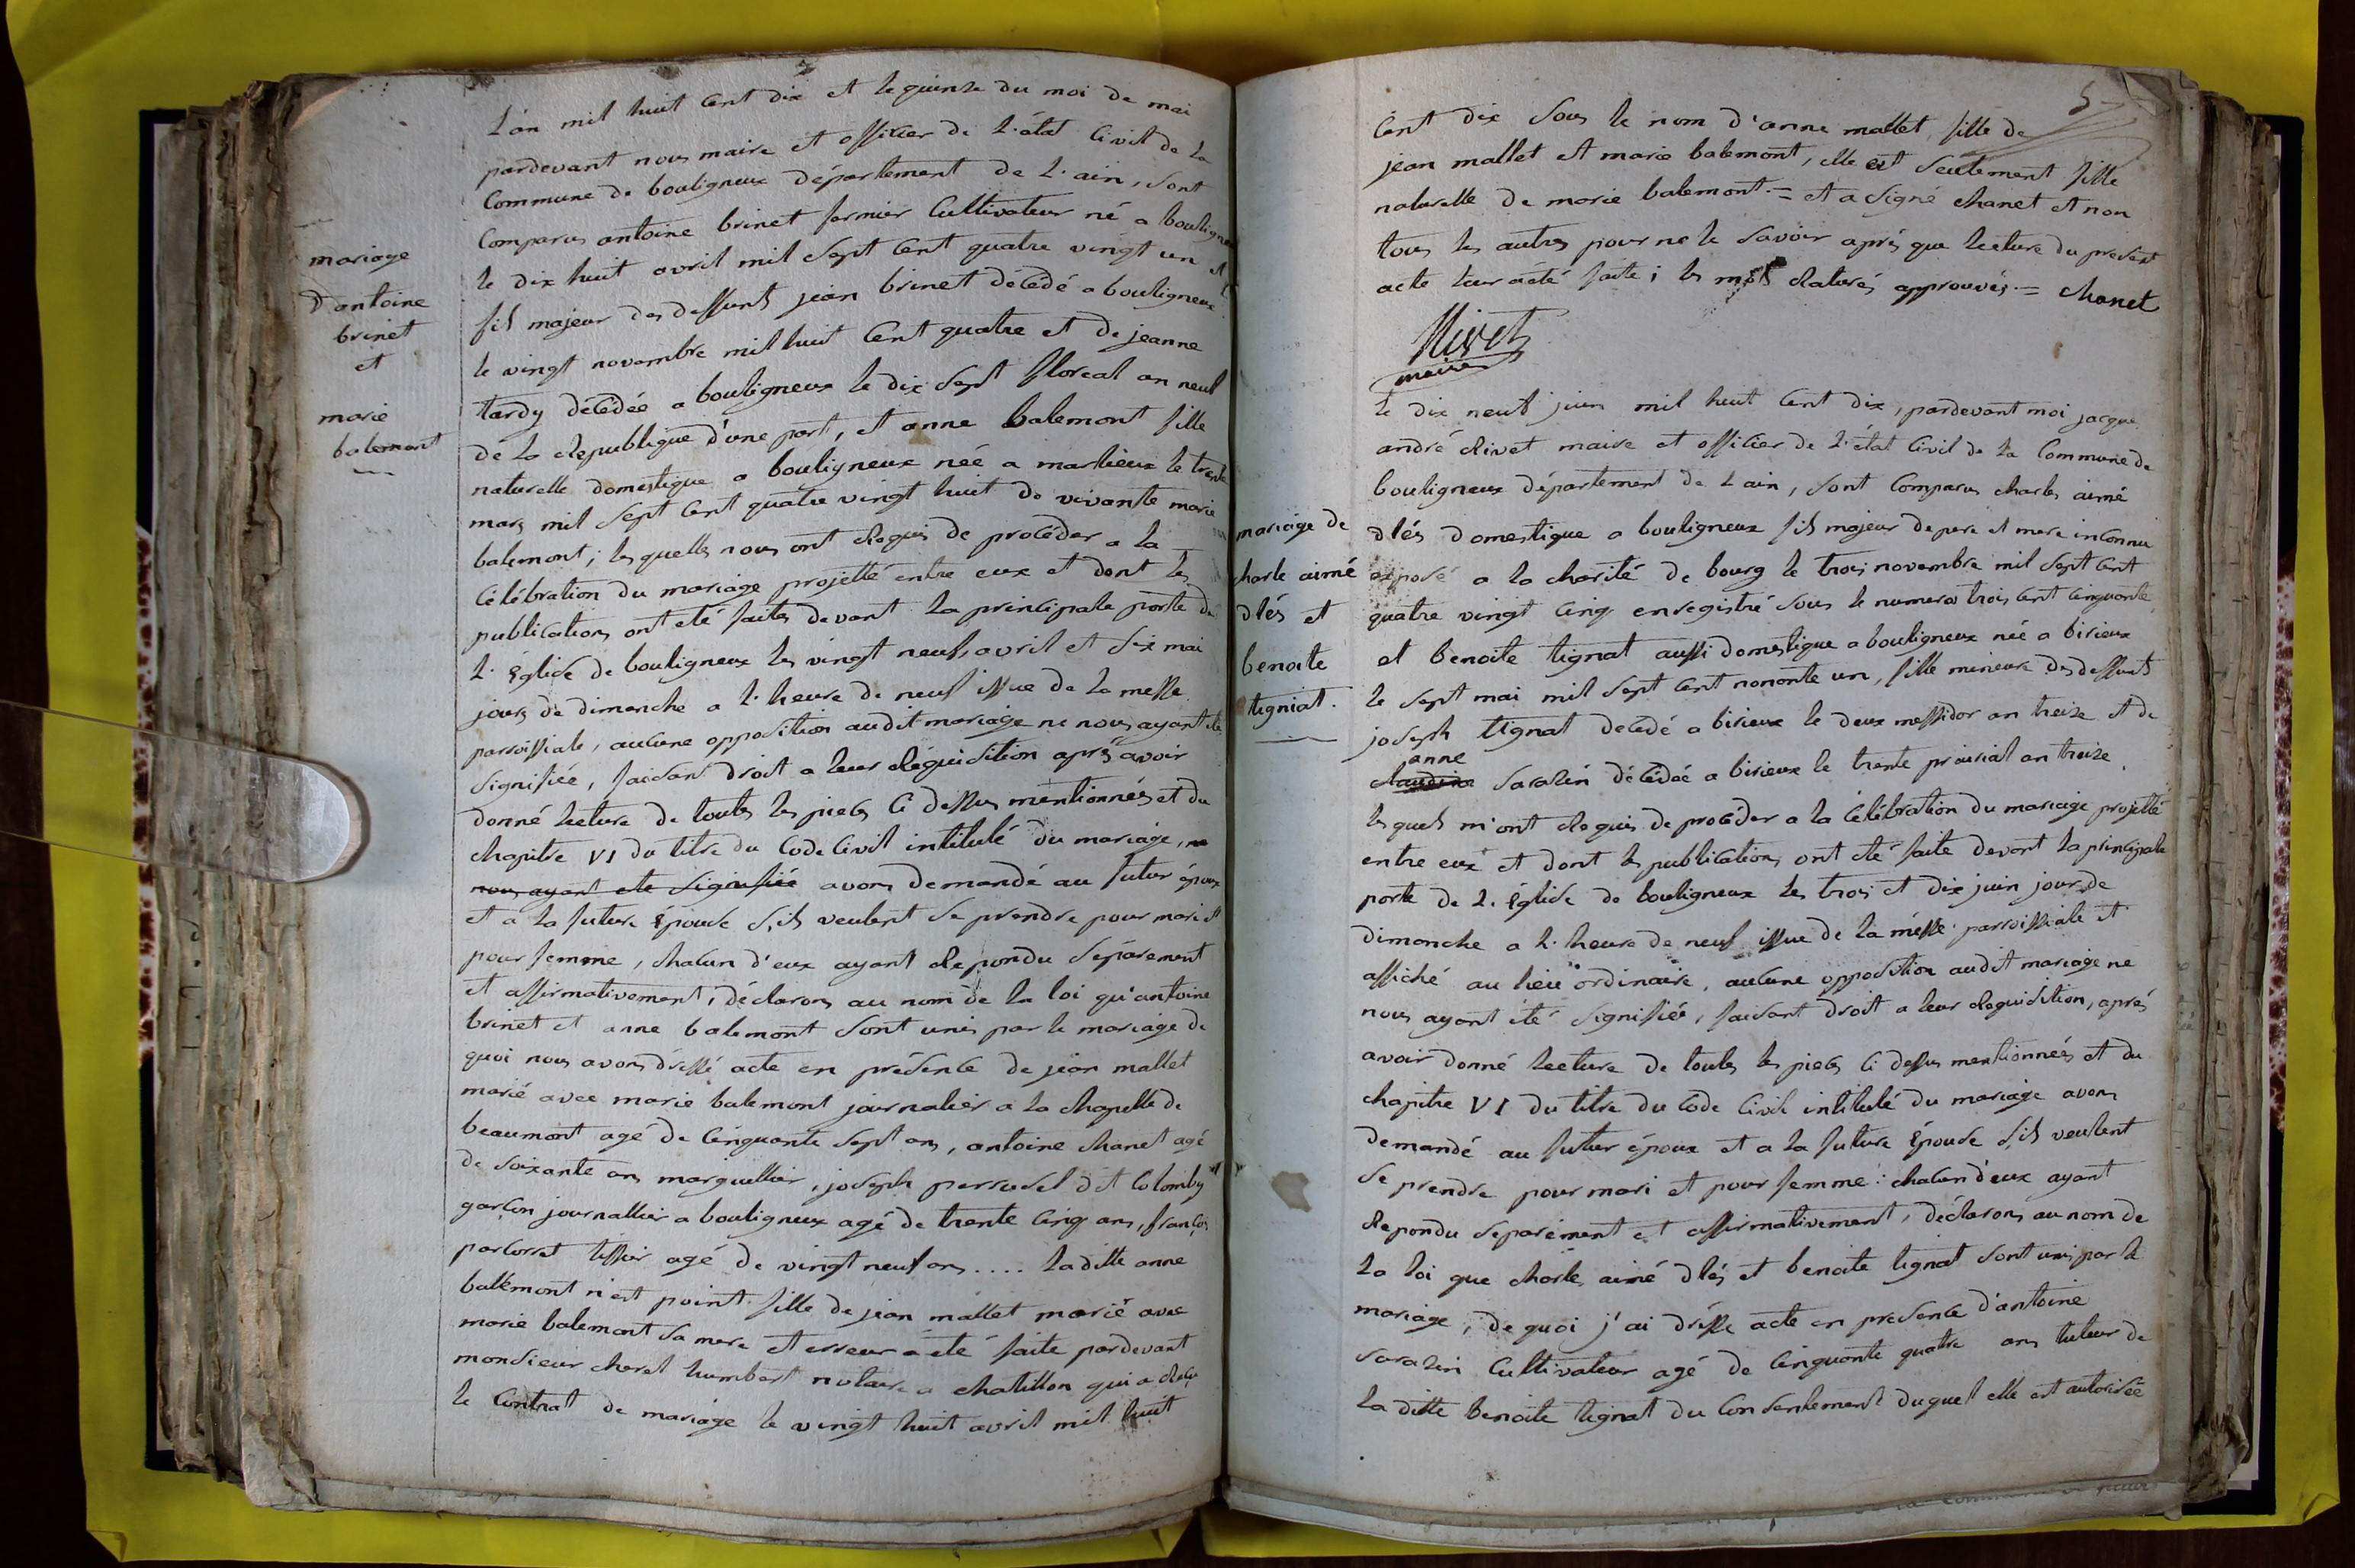 mariage
d'antoine
brinet
et
marie
balemont
L'an mil huit cent dix et le quinse du moi de mai
pardevant nous maire et officier de l'état civil de la
commune de bouligneux département de l'ain, sont
comparus antoine brinet fermier cultivateur né a bouligneux
le dix huit avril mil sept cent quatre vingt un et
fils majeur des deffunts jean brinet décédé a bouligneux
le vingt novembre mil huit cent quatre et de jeanne
tardy décédée a bouligneux le dix sept floreal an neuf
de la republique d'une part, et anne balemont fille
naturelle domestique a bouligneux née a marlieux le trente
mars mil sept cent quatre vingt huit de vivante marie
balemont; les quelles nous ont requis de procéder a la
célébration du mariage projetté entre eux et dont les
publications ont été faites devant la principale porte de
l'église de bouligneux les vingt neuf avril et six mai
jours de dimanche a l'heure de neuf issue de la messe
parroissiale, aucune opposition audit mariage ne nous ayant été
signifiée, faisant droit a leur réquisition après avoir
donné lecture de toutes les pieces ci dessus mentionnées et du
chapitre VI du titre du code civil intitulé du mariage, ne
nous ayant ete signifiée avons demandé au futur époux
et a la future épouse s'ils veulent se prendre pour mari et
pour femme, chacun d'eux ayant repondu séparement
et affirmativement, déclarons au nom de la loi qu'antoine
brinet et anne balemont sont unis par le mariage de
quoi nous avons dressé acte en présence de jean mallet
marié avec marie balemont journalier a la chapelle de
beaumont agé de cinquante sept ans, antoine chanet agé
de soixante ans marguillier, joseph perrodel dit colomby
garcon journallier a bouligneux agé de trente cinq ans, françois
parcorret tissier agé de vingt neuf ans .... laditte anne
ballemont n'est point fille de jean mallet marié avec
marie balemont sa mere et erreur a été faite pardevant
monsieur charel humbert notaire a chatillon qui a reçu
le contrat de mariage le vingt huit avril mil huit
5
cent dix sous le nom d'anne mallet, fille de
jean mallet et marie balemont, elle est seulement fille
naturelle de marie balemont = et a signé chanet et non
tous les autres pour ne le savoir après que lecture du present
acte leur a été faite; les mots raturés approuvés = chanet
Rivet
maire
mariage de
charle aimé
dlés et
benoite
tigniat.
Le dix neuf juin mil huit cent dix, pardevant moi jacque
andré rivet maire et officier de l'état civil de la commune de
bouligneux département de l'ain, sont comparus charles aimé
dlés domestique a bouligneux fils majeur de pere et mere inconnu
exposé a la charité de bourg le trois novembre mil sept cent
quatre vingt cinq enregistré sous le numero trois cent cinquante
et benoite tignat aussi domestique a bouligneux née a birieux
le sept mai mil sept cent nonante un, fille mineure des deffunts
joseph tignat décédé a birieux le deux messidor an treize et de
anne
claudine sarazin décédée a birieux le trente prairial an treize,
les quels m'ont requis de procéder a la célébration du mariage projetté
entre eux et dont les publications ont été faite devant la principale
porte de l'église de bouligneux les trois et dix juin jour de
dimanche a l'heure de neuf issue de la messe parroissiale et
affiché au lieu ordinaire, aucune opposition audit mariage ne
nous ayant été signifiée, faisant droit a leur requisition, après
avoir donné lecture de toutes les pieces ci dessus mentionnées et du
chapitre VI du titre du code civil intitulé du mariage avons
demandé au futur époux et a la future épouse s'ils veulent
se prendre pour mari et pour femme: chacun d'eux ayant
repondu separément et affirmativement, déclarons au nom de
la loi que charle aimé dlés et benoite tignat sont unis par le
mariage, de quoi j'ai dressé acte en presence d'antoine
sarazin cultivateur agé de cinquante quatre ans tuteur de
la ditte benoite tignat du consentement duquel elle est autorisée